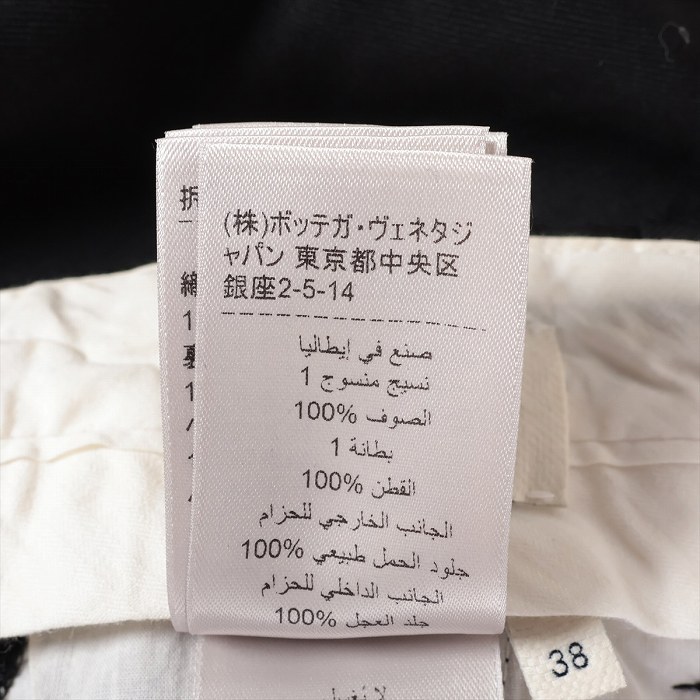 (株)ボッテガ・ヴェネタジ
ャパン 東京都中央区
銀座2-5-14
صنع في إيطاليا
نسيج منسوج 1
الصوف %100
بطانة 1
القطن %100
الجانب الخارجي للحزام
جلود الحمل طبيعي %100
الجانب الداخلي للحزام
جلد العجل %100
لا يُغسل
38